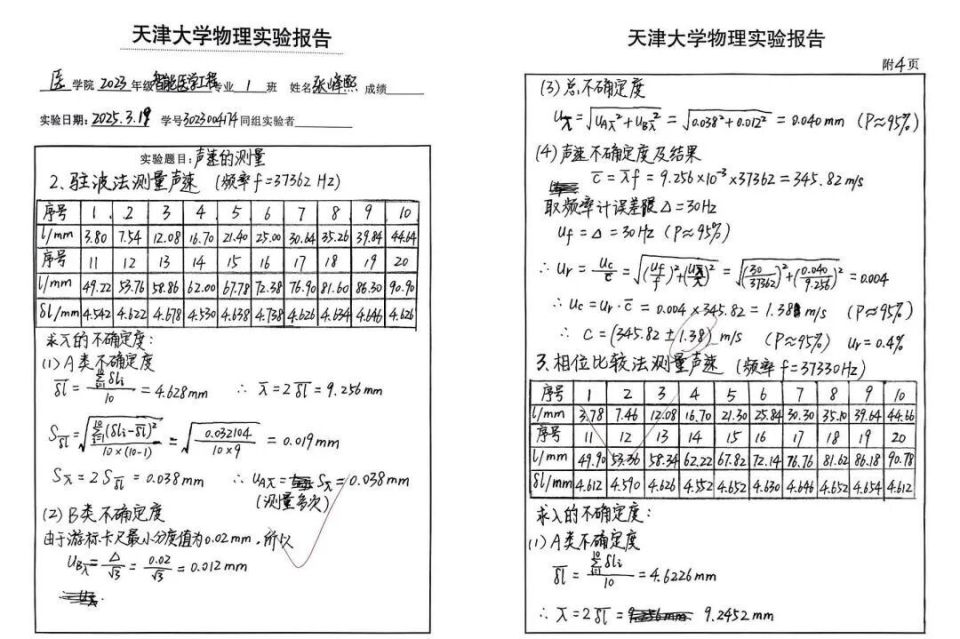 天津大学物理实验报告
医 学院 2023 年级 智能医学工程 专业 1 班 姓名 张峰熙 成绩
实验日期: 2025.3.19 学号 3023004174 同组实验者
实验题目: 声速的测量
2、驻波法测量声速 (频率 f=37362 Hz)
序号 1 2 3 4 5 6 7 8 9 10
l/mm 3.80 7.54 12.08 16.70 21.40 25.00 30.64 35.26 39.84 44.64
序号 11 12 13 14 15 16 17 18 19 20
l/mm 49.22 53.76 58.86 62.00 67.78 72.38 76.90 81.60 86.30 90.90
δl/mm 4.542 4.622 4.678 4.530 4.638 4.738 4.626 4.634 4.646 4.626
求λ的不确定度:
(1) A类不确定度
δl̄ = Σδlᵢ/10 = 4.628mm ∴ λ̄ = 2δl̄ = 9.256mm
S_δl̄ = √(Σ(δlᵢ-δl̄)²/10×(10-1)) = √(0.032104/10×9) = 0.019mm
S_λ̄ = 2S_δl̄ = 0.038mm ∴ U_Aλ̄ = S_λ̄ = 0.038mm
(测量多次)
(2) B类不确定度
由于游标卡尺最小分度值为0.02mm,所以
U_Bλ̄ = Δ/√3 = 0.02/√3 = 0.012mm
天津大学物理实验报告
附4页
(3) 总不确定度
U_λ̄ = √(U_Aλ̄²+U_Bλ̄²) = √(0.038²+0.012²) = 0.040mm (P≈95%)
(4) 声速不确定度及结果
c̄ = λ̄f = 9.256×10⁻³×37362 = 345.82m/s
取频率计误差限Δ=30Hz
U_f = Δ = 30Hz (P≈95%)
∴ U_r = U_c/c̄ = √((U_f/f)²+(U_λ̄/λ̄)²) = √((30/37362)²+(0.040/9.256)²) = 0.004
∴ U_c = U_r·c̄ = 0.004×345.82 = 1.38m/s (P≈95%)
∴ C = (345.82±1.38) m/s (P≈95%) U_r=0.4%
3.相位比较法测量声速 (频率 f=37330Hz)
序号 1 2 3 4 5 6 7 8 9 10
l/mm 3.78 7.46 12.08 16.70 21.30 25.84 30.30 35.10 39.64 44.66
序号 11 12 13 14 15 16 17 18 19 20
l/mm 49.90 53.36 58.34 62.22 67.82 72.14 76.76 81.62 86.18 90.78
δl/mm 4.612 4.590 4.626 4.552 4.652 4.630 4.646 4.652 4.654 4.612
求λ的不确定度:
(1) A类不确定度
δl̄ = Σδlᵢ/10 = 4.6226mm
∴ λ̄ = 2δl̄ = 9.2452mm